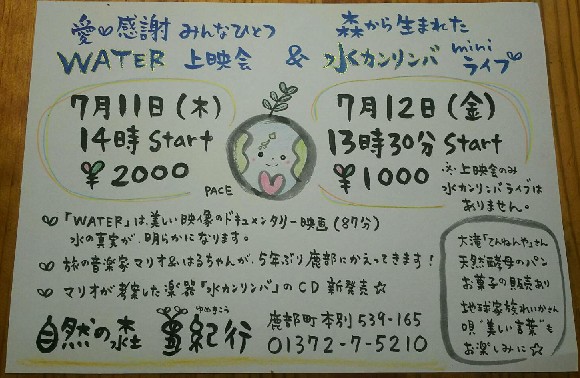 愛♡感謝 みんなひとつ
WATER 上映会
&
森から生まれた
水カンリンバ mini ライブ
7月11日(木)
14時 Start
¥2000
PACE
7月12日(金)
13時30分 Start
¥1000
※上映会のみ
水カンリンバライブは
ありません。
「WATER」は、美しい映像のドキュメンタリー映画(87分)
水の真実が、明らかになります。
旅の音楽家マリオ&はるちゃんが、5年ぶり鹿部にかえってきます!
マリオが考案した楽器「水カンリンバ」のCD 新発売☆
大滝「てんねんや」さん
天然酵母のパン
お菓子の販売あり
地球家族れいかさん
唄"美しい言葉"も
お楽しみに☆
ゆめきこう
自然の 紀行
鹿部町本別539-165
01372-7-5210